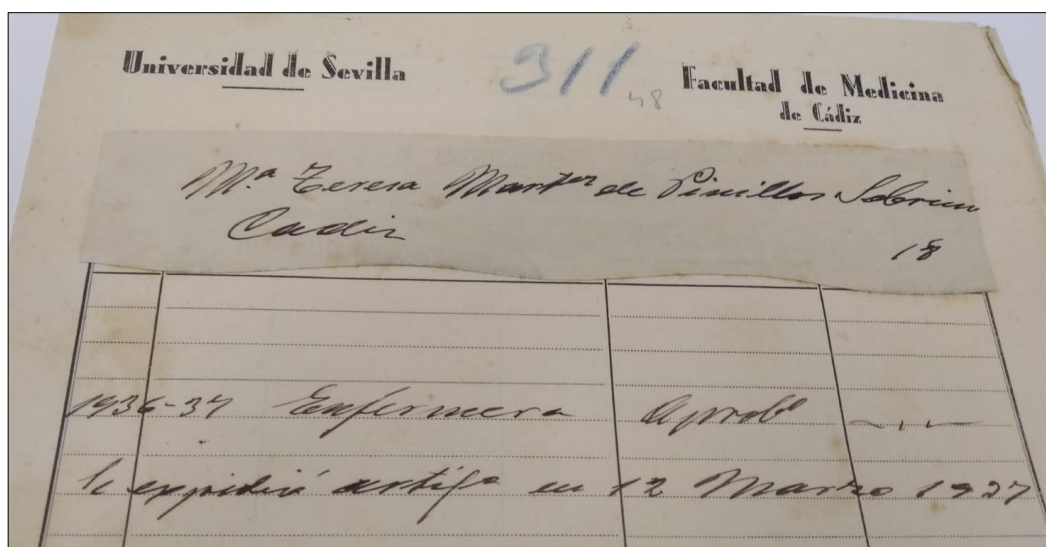 Universidad de Sevilla
311
48
Facultad de Medicina
de Cádiz
Mª Teresa Martnez de Pinillos Sobrino
Cadiz
18
1936-37 Enfermera Aprobº
Se expidió certifº en 12 Marzo 1937